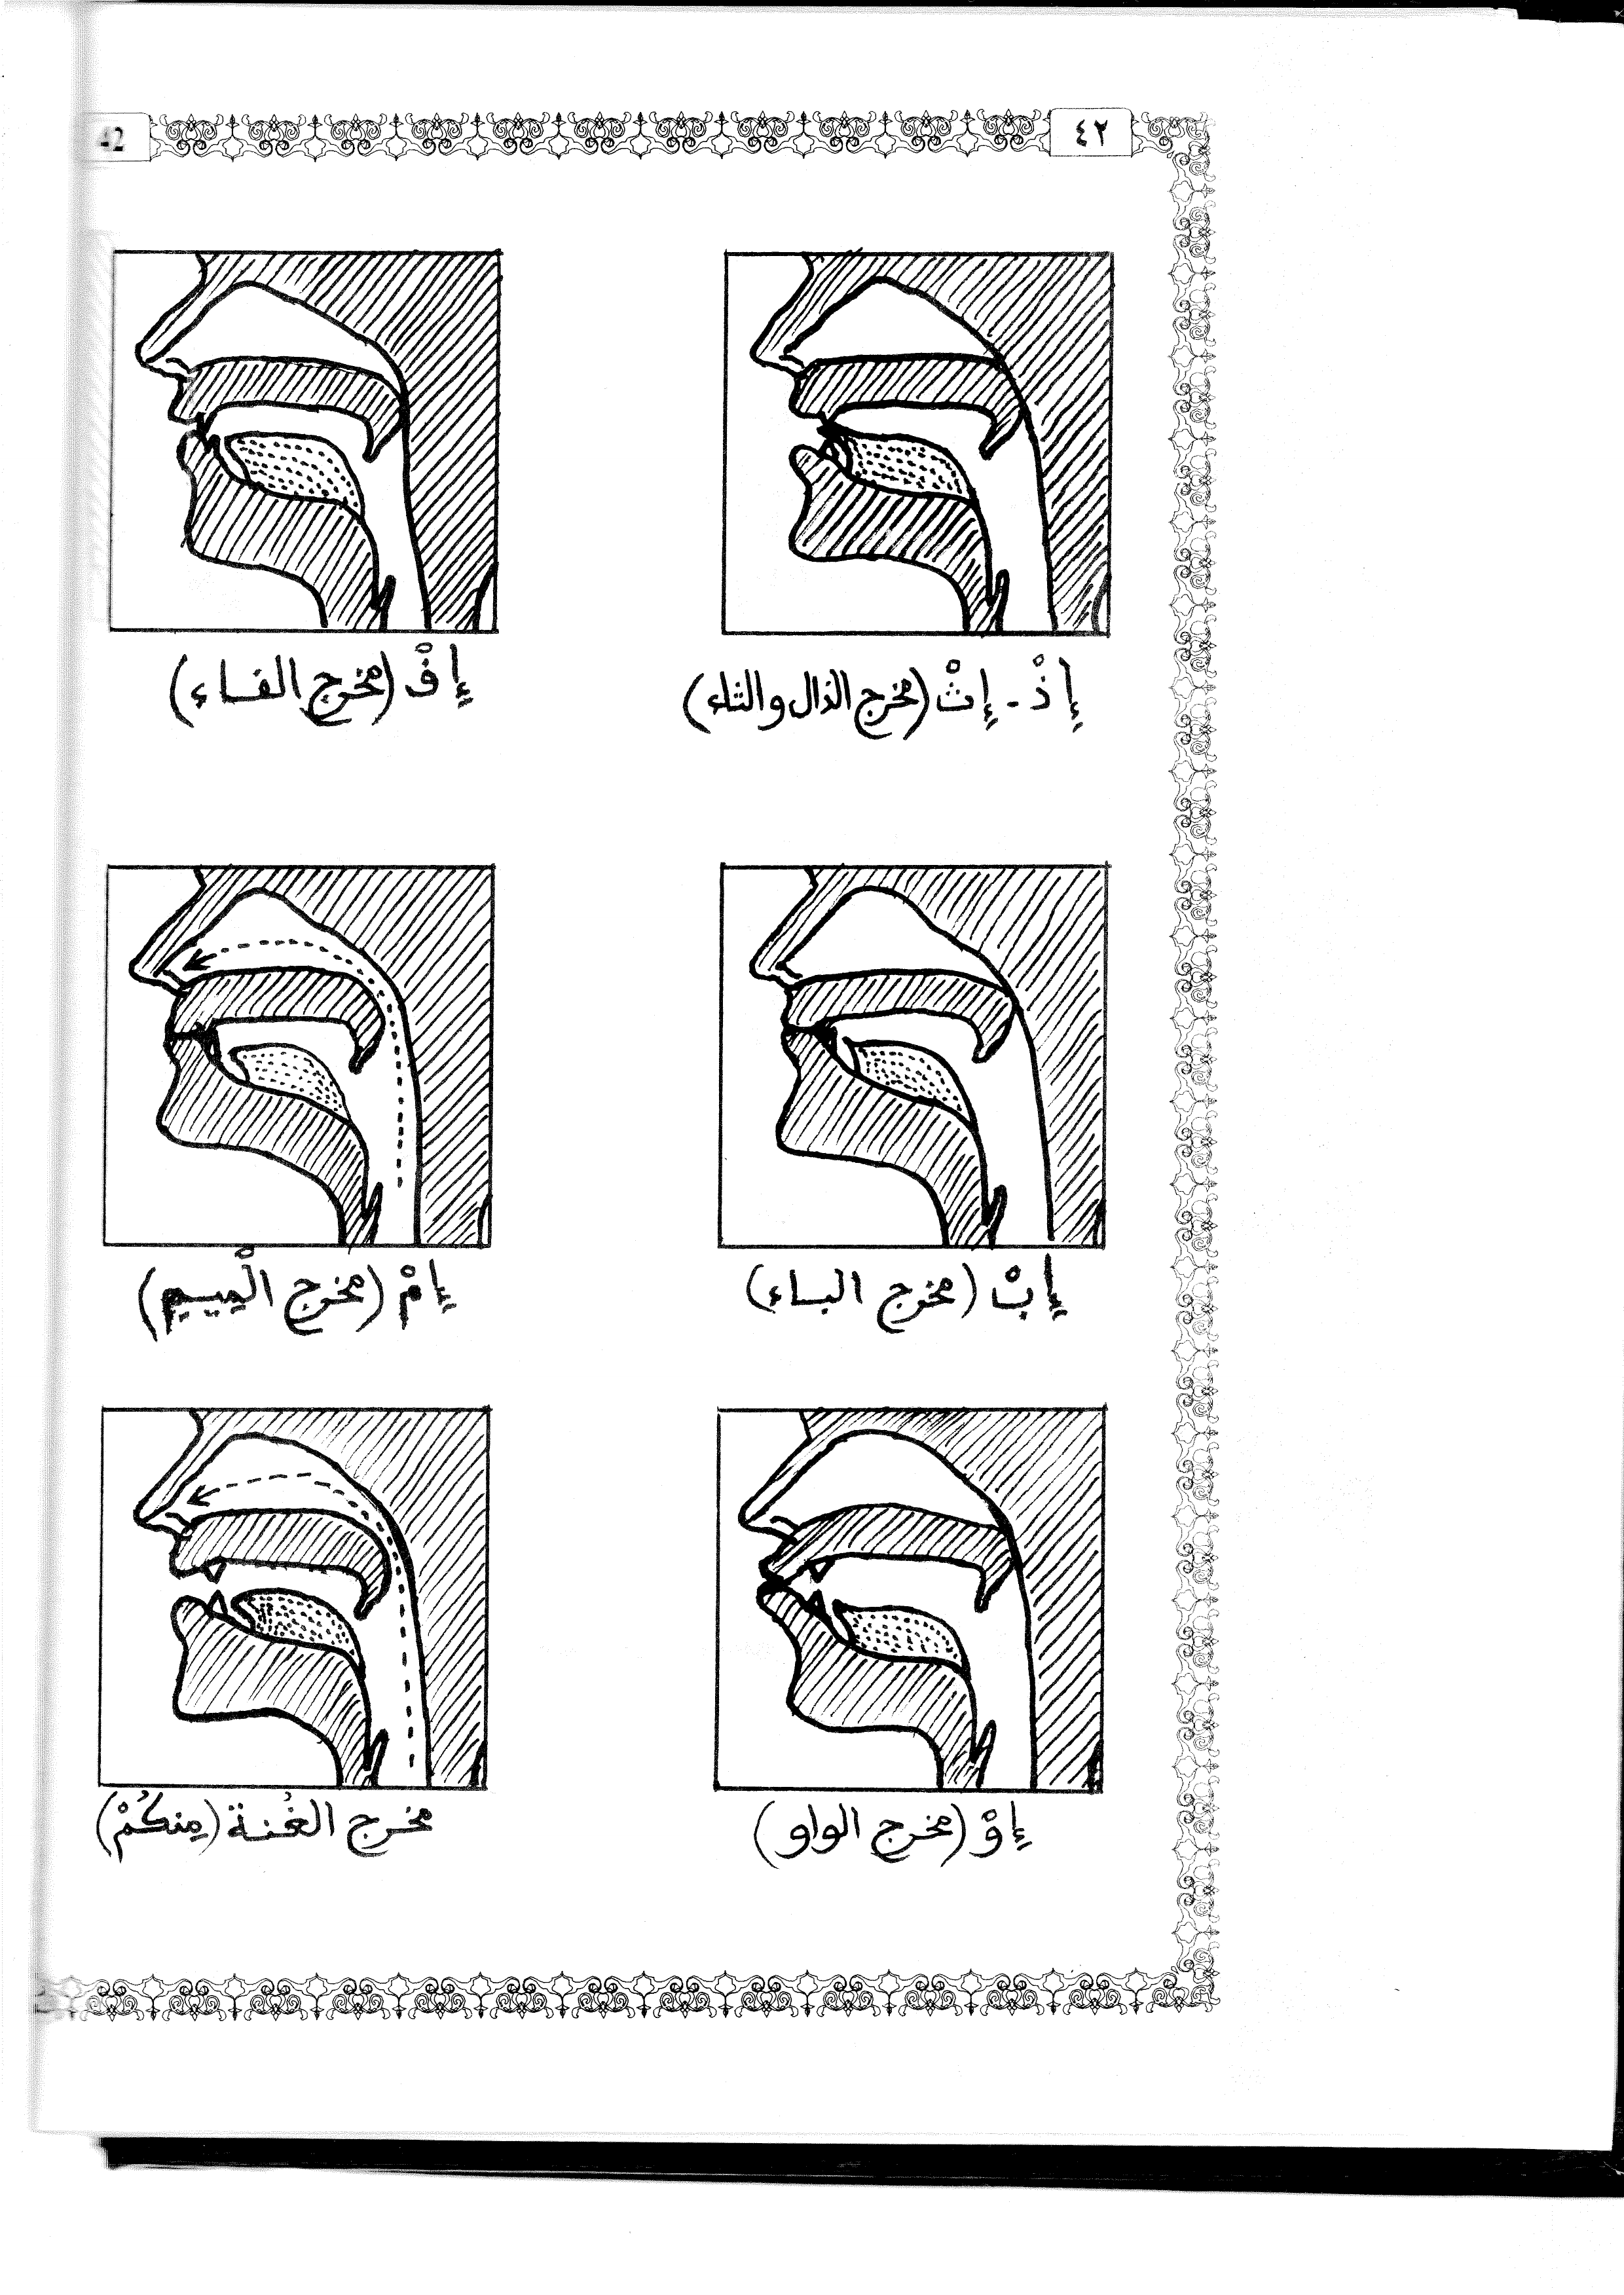 ٤٢
42
إذْ - إثْ (مخرج الذال والثاء)
إفْ (مخرج الفاء)
إبْ (مخرج الباء)
إمْ (مخرج الْميم)
إوْ (مخرج الواو)
مخرج الغُنة (مِنكُمْ)